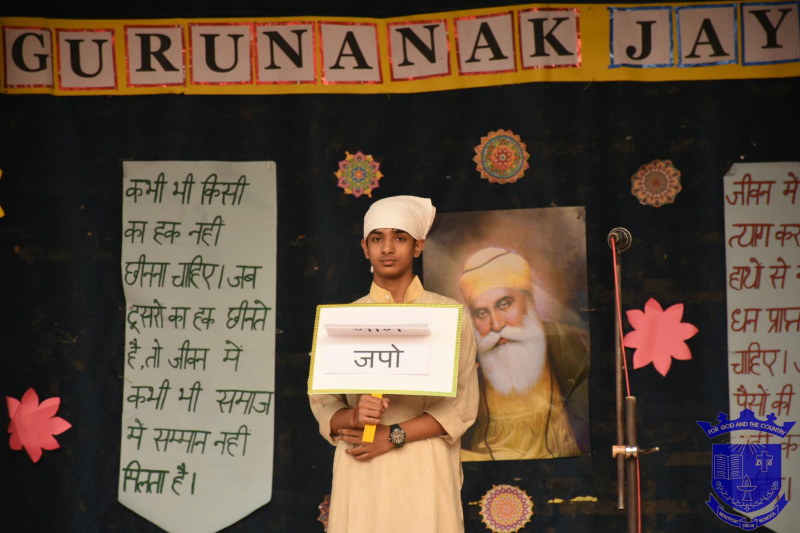 GURUNANAK JAY
कभी भी किसी
का हक नही
छीनना चाहिए। जब
दूसरो का हक छीनते
है, तो जीवन में
कभी भी समाज
मे सम्मान नही
मिलता है।
जपो
जीवन में
त्याग कर
हाथो से
धन प्राप्त
चाहिए।
पैसों की
FOR GOD AND THE COUNTRY
MONTFORT SCHOOL